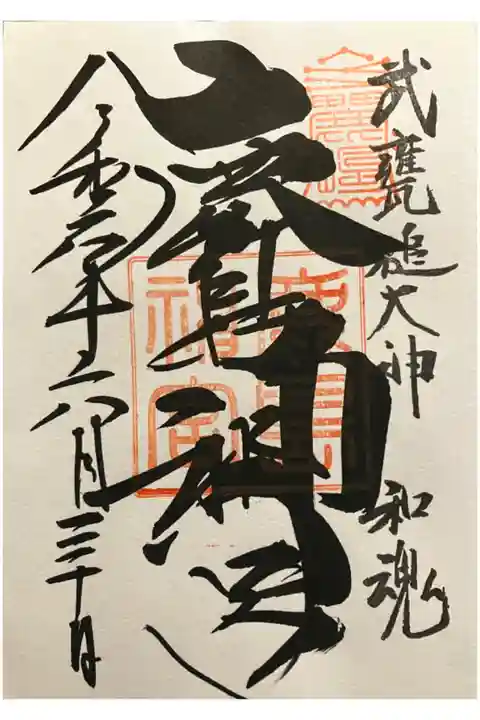 武甕槌大神 和魂
鹿島神宮
鹿島神宮
令和六年六月三十日